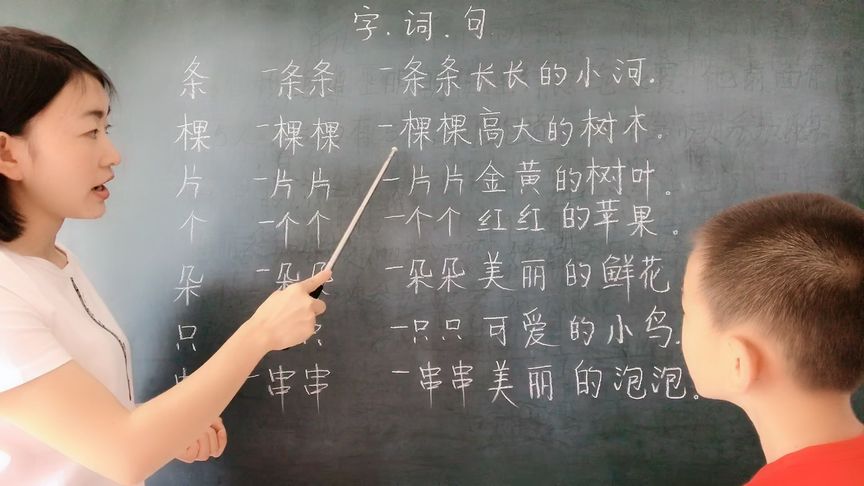 字.词.句
条 一条条 一条条长长的小河.
棵 一棵棵 一棵棵高大的树木。
片 一片片 一片片金黄的树叶。
个 一个个 一个个红红的苹果。
朵 一朵朵 一朵朵美丽的鲜花
只 只 一只只可爱的小鸟.
一串串 一串串美丽的泡泡。